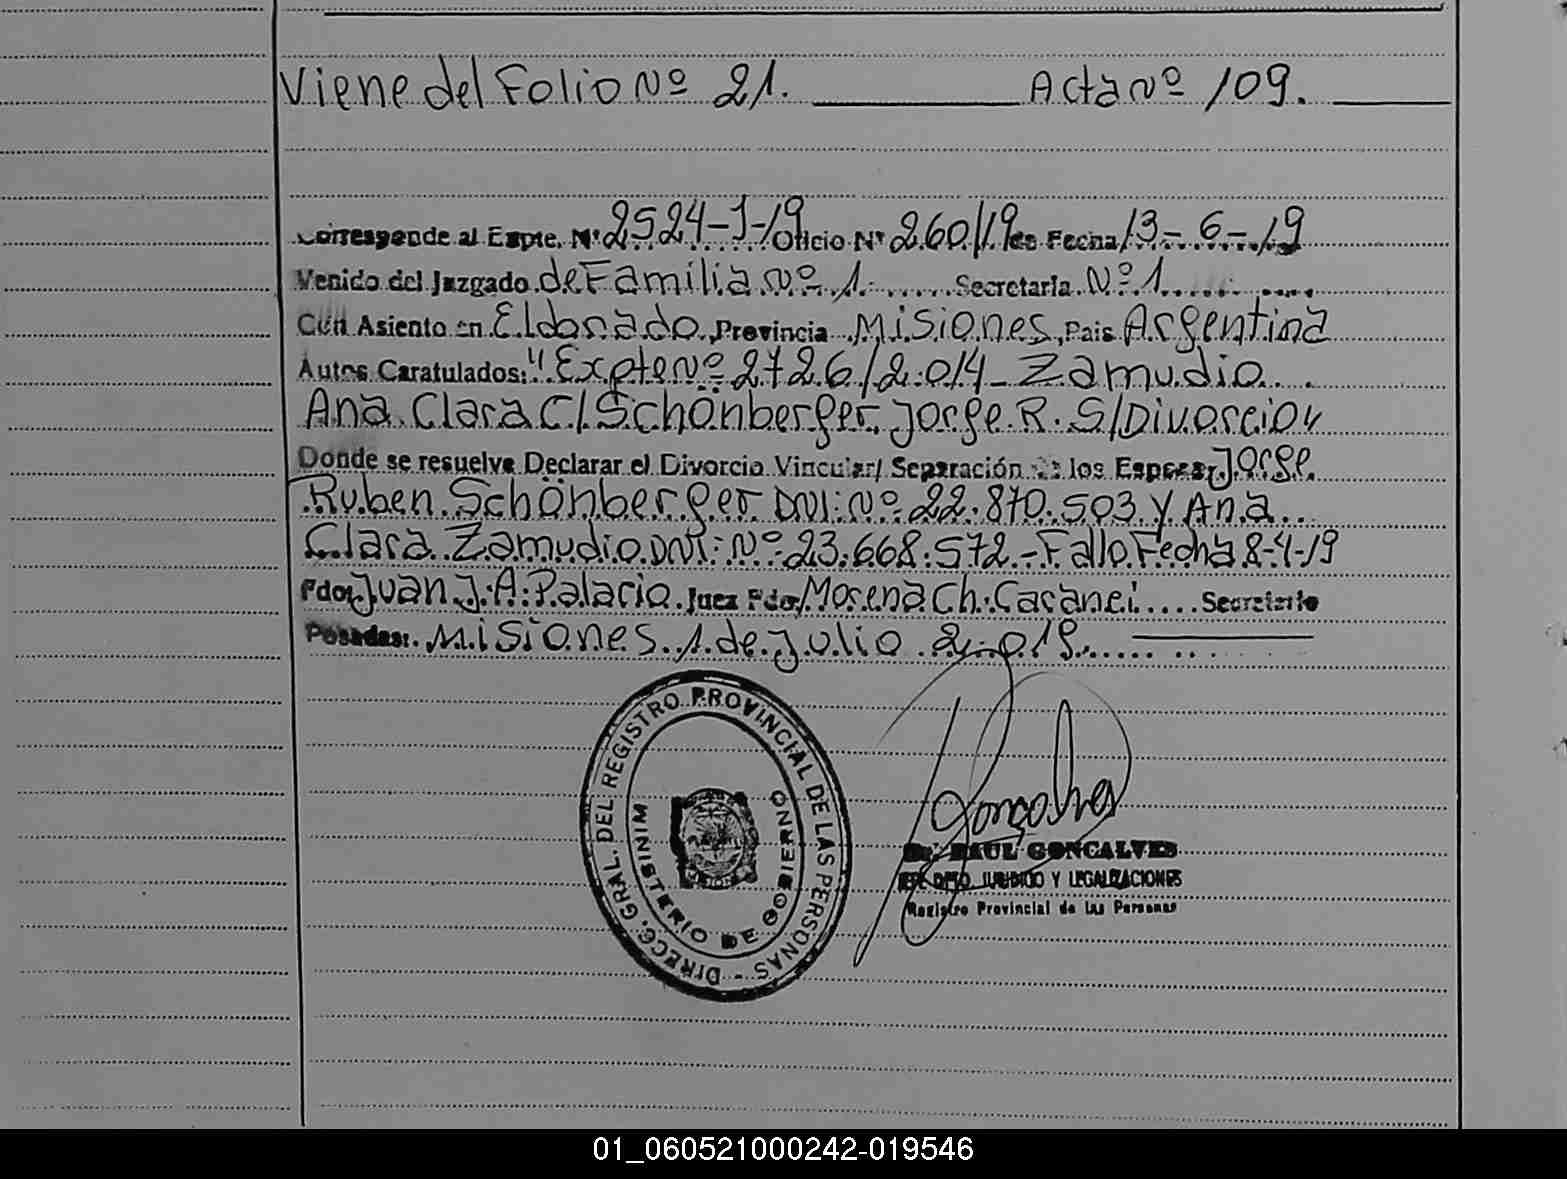 Viene del Folio Nº 21. Acta nº 109.
Corresponde al Expte. Nº 2524-J-19 Oficio Nº 260/19 de Fecha 13-6-19
Venido del Juzgado de Familia nº 1. Secretaría Nº 1
Con Asiento en Eldorado, Provincia Misiones, País Argentina
Autos Caratulados: "Expte Nº 2726/2014 - Zamudio
Ana Clara C/ Schönberger, Jorge R. S/Divorcio"
Donde se resuelve Declarar el Divorcio Vincular/ Separación de los Esposos, Jorge
Ruben Schönberger DNI: Nº 22.870.503 y Ana
Clara Zamudio DNI: Nº 23.668.572 - Fallo Fecha 8-4-19
Fdo. Juan J. A. Palacio Juez Fdo. Morena Ch. Cacanei Secretario
Posadas: Misiones 1 de Julio 2.019
DIRECC. GRAL. DEL REGISTRO PROVINCIAL DE LAS PERSONAS -
MINISTERIO DE GOBIERNO
Dr. RAUL GONCALVES
JEFE DPTO. JURIDICO Y LEGALIZACIONES
Registro Provincial de las Personas
01_060521000242-019546